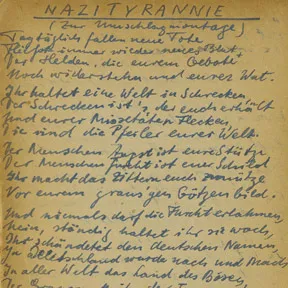 NAZITYRANNIE
(Zur Umschlagmontage)
Tagtäglich fallen neue Tote,
Fließt immer wieder neues Blut
Der Helden, die eurem Gebote
Noch widerstehen und eurer Wut.
Ihr haltet eine Welt in Schrecken
Der Schrecken ist's, der euch erhält
Und eurer Missetaten Flecken,
Sie sind die Pfeiler eurer Welt.
Der Menschen Angst ist eure Stütze
Der Menschen Furcht ist euer Schild
Ihr macht das Zittern euch zunütze
Vor eurem grausigen Götzenbild.
Und niemals darf die Furcht erlahmen,
Nein, ständig haltet ihr sie wach,
Ihr schändetet den deutschen Namen,
Ja Deutschland wurde nach und nach
In aller Welt das Land des Bösen,